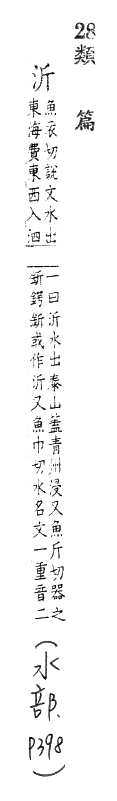 28類 篇
沂 魚衣切說文水出
東海費東西入泗
一曰沂水出泰山蓋青州浸又魚斤切器之
釿鍔釿或作沂又魚巾切水名文一重音二
(水部.P398)